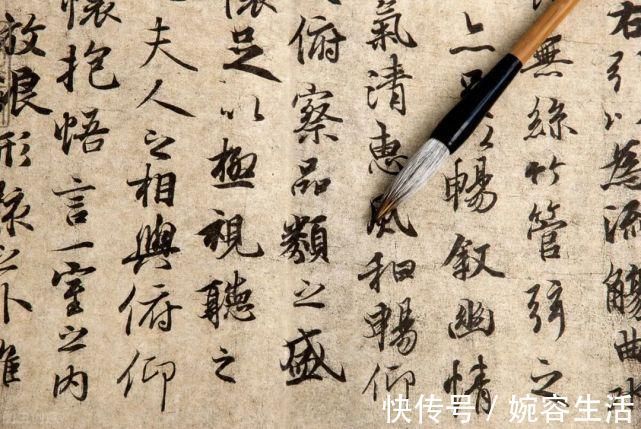 右以為流觴曲水
無絲竹管弦之
亦足以暢敘幽情
氣清惠風和暢仰
俯察品類之盛
懷足以極視聽之
夫人之相與俯仰
懷抱悟言一室之內
放浪形骸之外雖
快传号 / 婉容生活